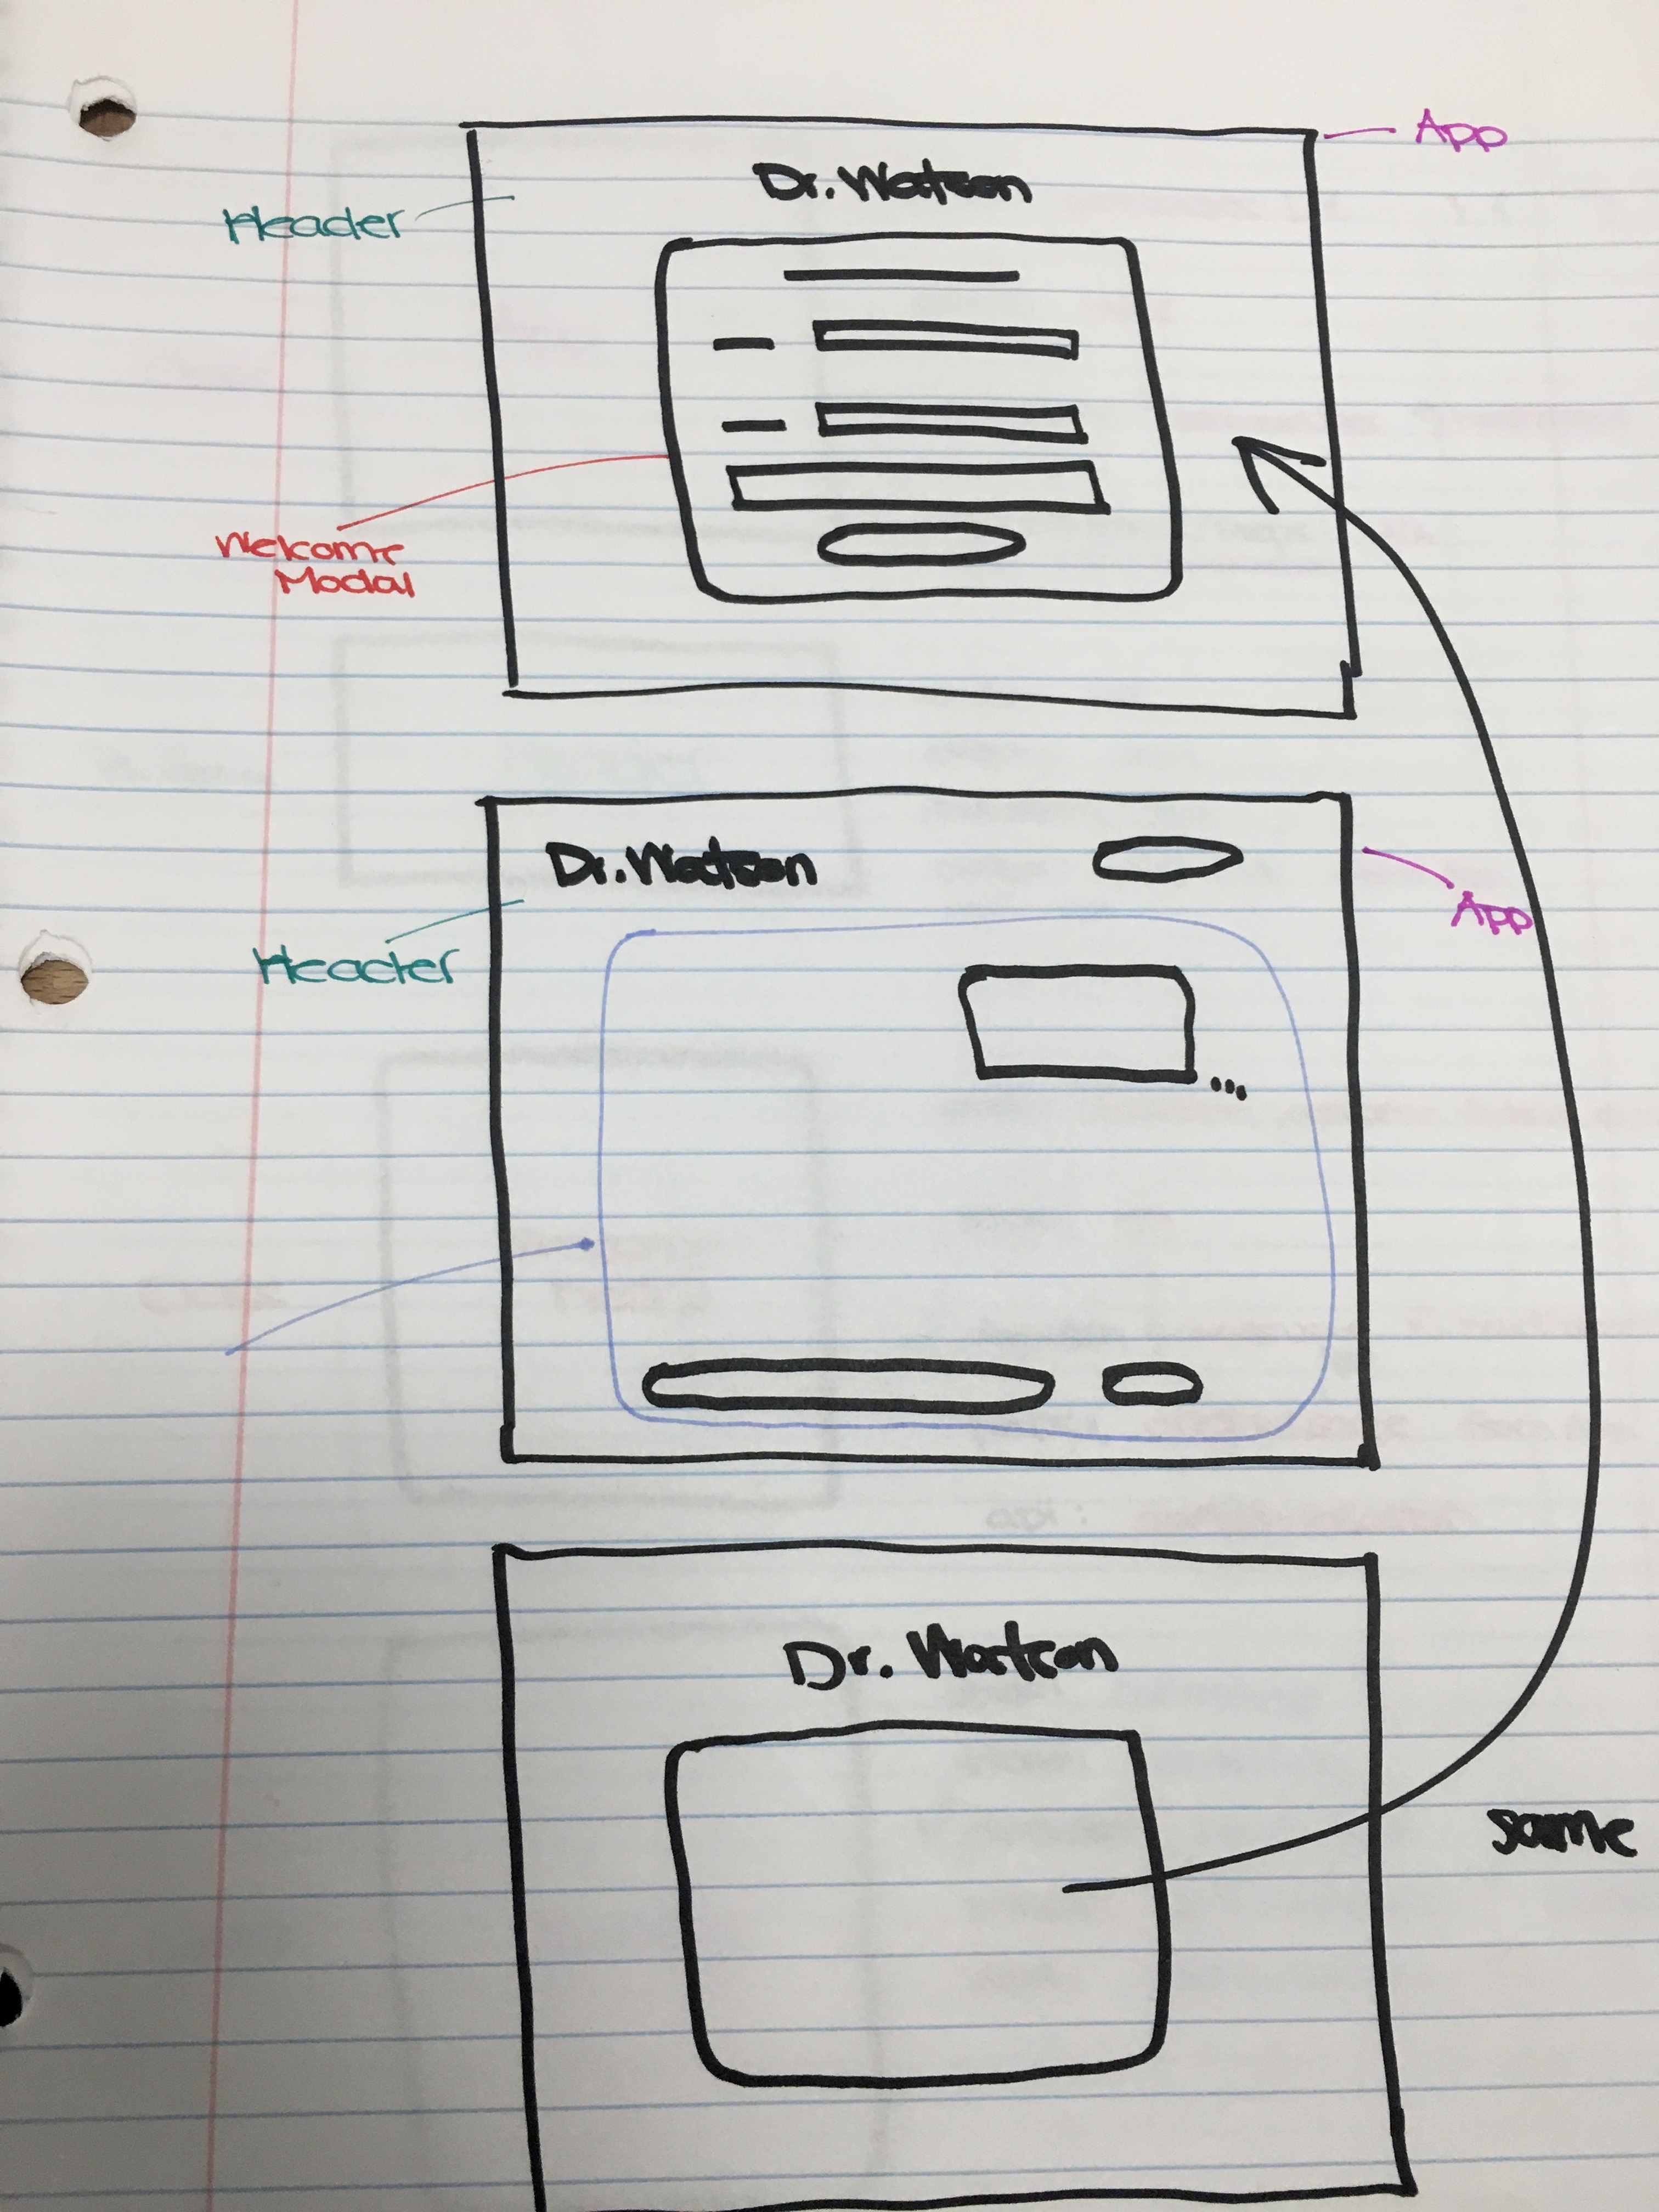 App
Dr. Watson
Header
Welcome
Modal
Dr. Watson
App
Header
Dr. Watson
same